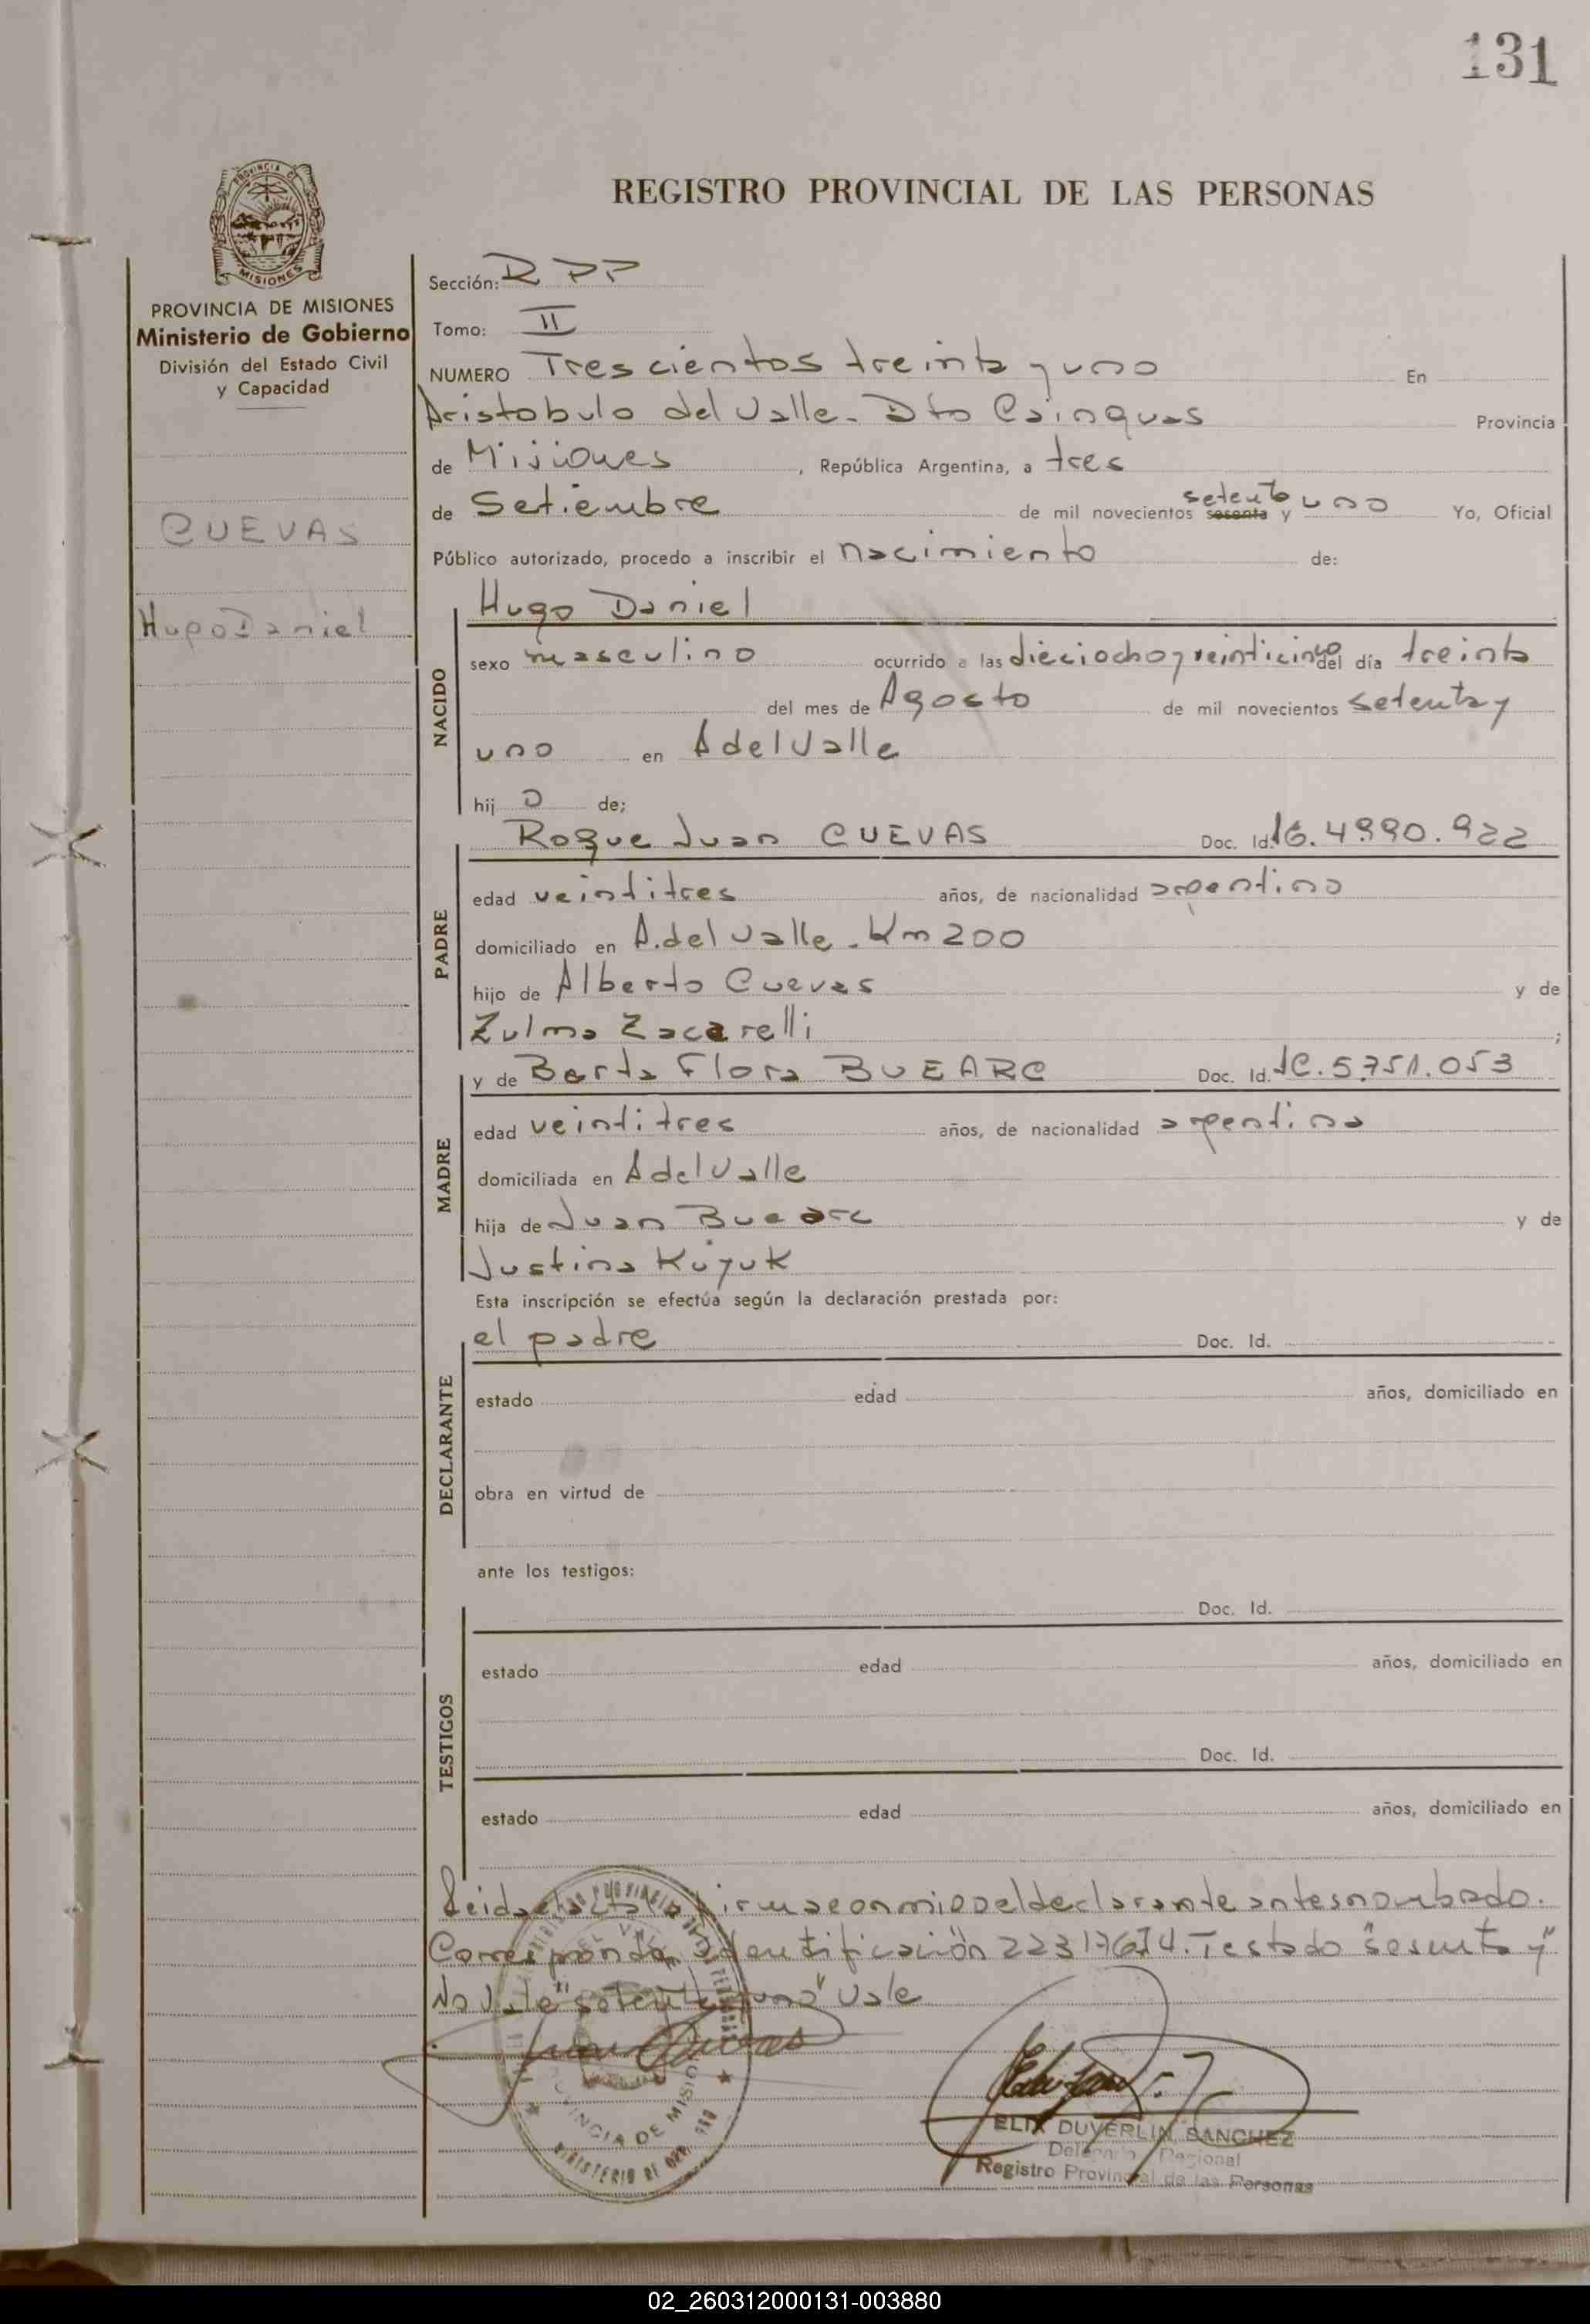 131
REGISTRO PROVINCIAL DE LAS PERSONAS
PROVINCIA DE MISIONES
Ministerio de Gobierno
División del Estado Civil
y Capacidad
CUEVAS
Hugo Daniel
Sección: RPP
Tomo: II
NUMERO Trescientos treinta y uno En
Aristobulo del Valle. Dto Cainguas Provincia
de Misiones, República Argentina, a tres
setenta
de Setiembre de mil novecientos sesenta y uno Yo, Oficial
Público autorizado, procedo a inscribir el nacimiento de:
Hugo Daniel
NACIDO
sexo masculino ocurrido a las dieciocho y veinticinco del día treinta
del mes de Agosto de mil novecientos setenta y
uno en A del Valle
hij o de;
Roque Juan CUEVAS Doc. Id.
PADRE
edad veintitres años, de nacionalidad argentino
domiciliado en A. del Valle. Km 200
hijo de Alberto Cuevas y de
Zulma Zacarelli ;
y de Berta Flora BUEARC Doc. Id.
MADRE
edad veintitres años, de nacionalidad argentina
domiciliada en A del Valle
hija de Juan Buearc y de
Justina Kuyuk
Esta inscripción se efectúa según la declaración prestada por:
el padre Doc. Id.
DECLARANTE
estado edad años, domiciliado en
obra en virtud de
ante los testigos:
Doc. Id.
TESTIGOS
estado edad años, domiciliado en
Doc. Id.
estado edad años, domiciliado en
Leida el acta la firma conmigo el declarante antes nombrado.
Corresponde identificación Testado "sesenta y"
No Vale "setenta y uno" Vale
ELIX DUVERLIN SANCHEZ
Delegado Regional
Registro Provincial de las Personas
02_260312000131-003880